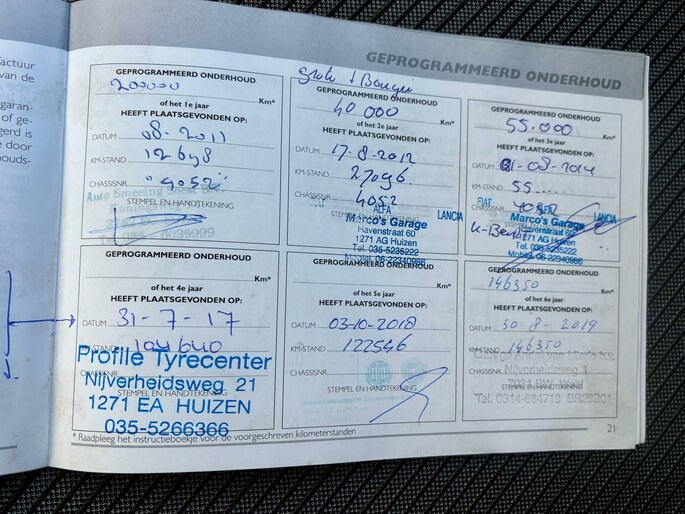 actuur
van de
garan-
of ge-
gerd is
e door
houds-
GEPROGRAMMEERD ONDERHOUD
GEPROGRAMMEERD ONDERHOUD
200000
Km*
of het 1e jaar
HEEFT PLAATSGEVONDEN OP:
DATUM 08-2011
KM-STAND 12648
CHASSISNR. "4052"
Auto Smeeing
STEMPEL EN HANDTEKENING
+ Bougie
GEPROGRAMMEERD ONDERHOUD
40 000
Km*
of het 2e jaar
HEEFT PLAATSGEVONDEN OP:
DATUM 17-8-2012
KM-STAND 27096.
CHASSISNR. 4052
STEMPEL EN HANDTEKENING
ALFA LANCIA
Marco's Garage
Havenstraat 60
1271 AG Huizen
Tel. 035-5235222
Mobiel. 06-22340986
GEPROGRAMMEERD ONDERHOUD
55.000
Km*
of het 3e jaar
HEEFT PLAATSGEVONDEN OP:
DATUM 31-08-2014
KM-STAND 55....
CHASSISNR. 4052
FIAT LANCIA
STEMPEL EN HANDTEKENING
Marco's Garage
Havenstraat 60
1271 AG Huizen
Tel. 035-5235222
Mobiel. 06-22340986
GEPROGRAMMEERD ONDERHOUD
Km*
of het 4e jaar
HEEFT PLAATSGEVONDEN OP:
DATUM 31-7-17
KM-STAND 104640
CHASSISNR.
STEMPEL EN HANDTEKENING
Profile Tyrecenter
Nijverheidsweg 21
1271 EA HUIZEN
035-5266366
GEPROGRAMMEERD ONDERHOUD
Km*
of het 5e jaar
HEEFT PLAATSGEVONDEN OP:
DATUM 03-10-2018
KM-STAND 122546
CHASSISNR.
STEMPEL EN HANDTEKENING
GEPROGRAMMEERD ONDERHOUD
146350
Km*
of het 6e jaar
HEEFT PLAATSGEVONDEN OP:
DATUM 30-8-2019
KM-STAND 146350
CHASSISNR.
Nijverheidsweg 3
STEMPEL EN HANDTEKENING
Tel. 0314-684718
* Raadpleeg het instructieboekje voor de voorgeschreven kilometerstanden
21